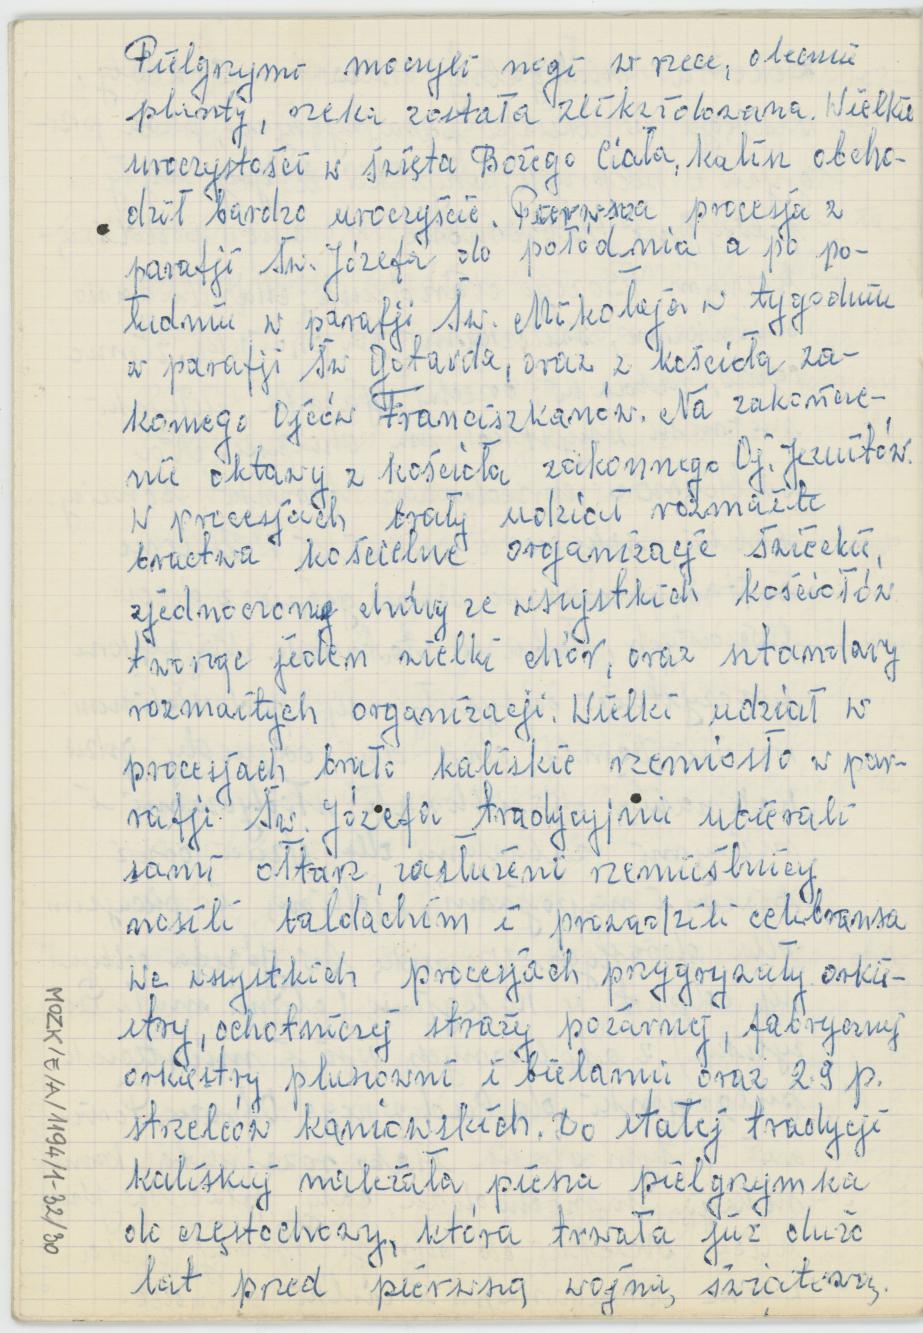 Pielgrzymi moczyli nogi w rzece, obecnie
planty, rzeka została zlikwidowana. Wielkie
uroczystości w święta Bożego Ciała, kalisz obcho-
dził bardzo uroczyście. Pierwsza procesja z
parafji Św. Józefa do połódnia a po po-
łudniu w parafji Św. Mikołaja w tygodniu
w parafji Św Gotarda, oraz z kościoła za-
konnego Ojców Franciszkanów. Na zakończe-
nie oktawy z kościoła zakonnego Oj. Jezuitów.
W procesjach brały udział rozmaite
bractwa kościelne organizacje świeckie,
zjednoczone chóry ze wszystkich kościołów
tworząc jeden wielki chór, oraz sztandary
rozmaitych organizacji. Wielki udział w
procesjach brało kaliskie rzemiosło w par-
rafji Św. Józefa tradycyjnie ubierali
sami ołtarz, zasłużeni rzemieślnicy
nosili baldachim i prowadzili celebransa
we wszystkich procesjach przygrywały orkie-
stry, ochotniczej straży pożarnej, fabrycznej
orkiestry pluszowni i bielarni oraz 29 p.
strzelców kaniowskich. Do stałej tradycji
kaliskiej należała piesza pielgrzymka
do częstochowy, która trwała już dużo
lat przed pierwszą wojną światową.
MOZK/E/A/1194/1-32/30